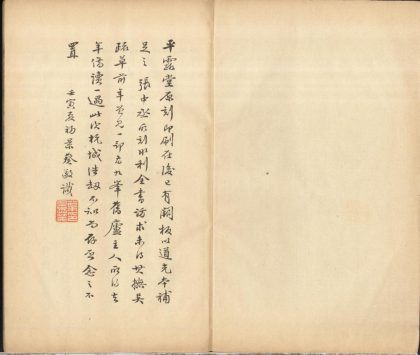 平露堂原刻印刷在後已有闕板以道光本補
足之張中丞所刻水利全書訪求未得其撫吳
疏草前年曾見一部為九峯舊廬主人所得去
年借讀一過此次杭城浩劫不知尚存否念之不
置
壬寅夏初景葵敬識